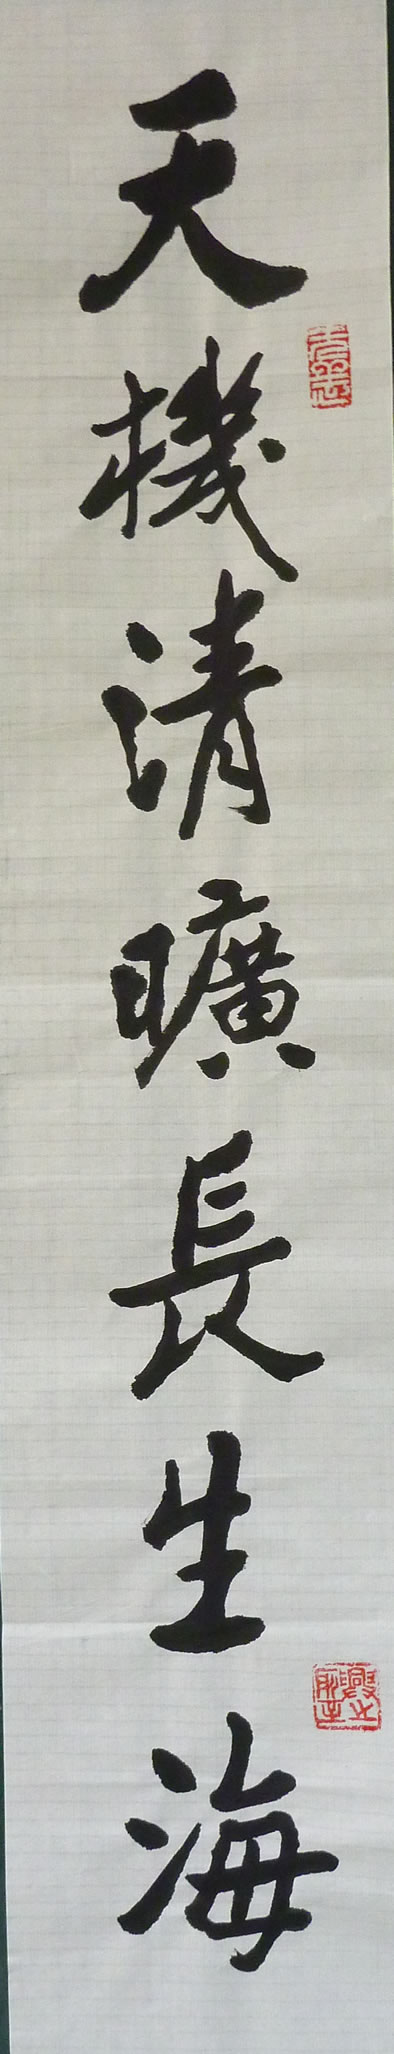 天機清曠長生海